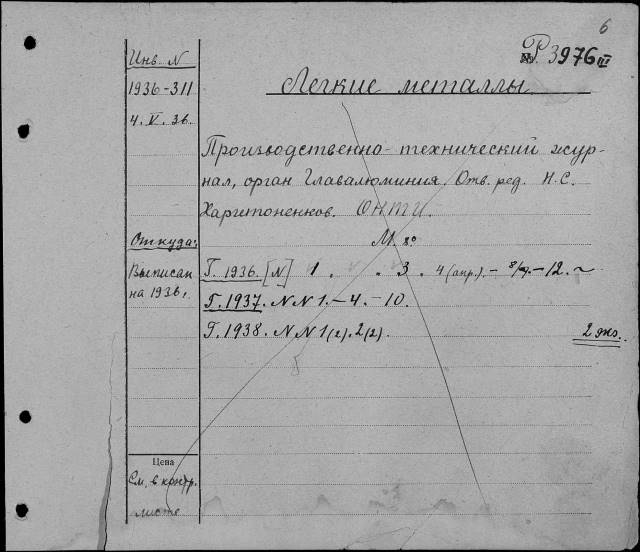 6
Р. 3976 III
Инв. N
1936-311
4.V.36.
Легкие металлы
Производственно-технический жур-
нал, орган Главалюминия. Отв. ред. Н.С.
Харитоненков. ОНТИ.
Откуда:
М. 8°
Выписан
на 1936 г.
Г. 1936. [N] 1 . . 3 . 4 (апр.). – 8/9. – 12. ~
Г. 1937. N N 1. – 4. – 10.
Г. 1938. N N 1 (2). 2 (2).
2 экз.
Цена
См. в контр.
листе